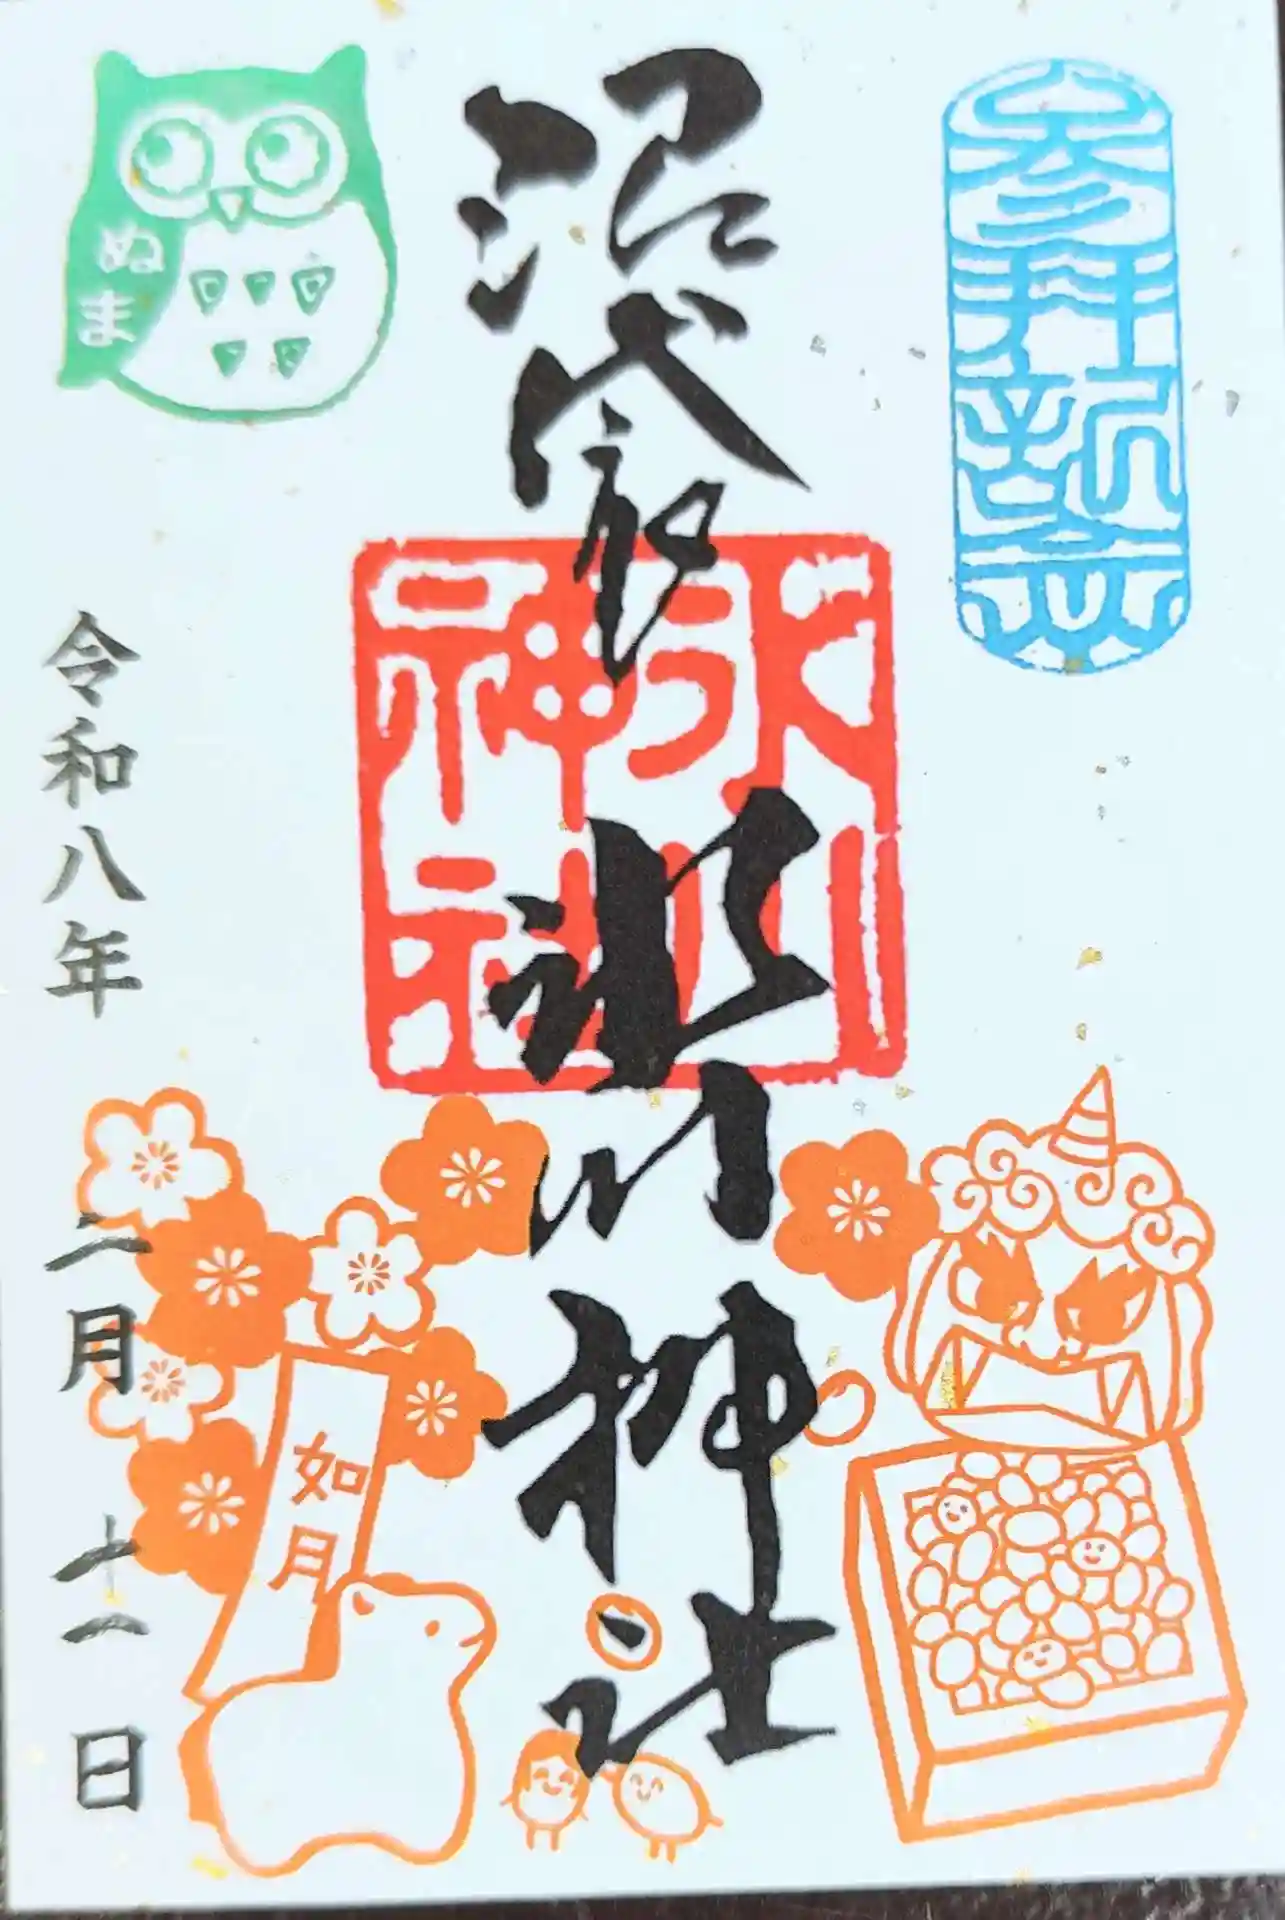 参拝記念
沼袋氷川神社
氷川
神社
ぬま
令和八年 二月 十一日
如月